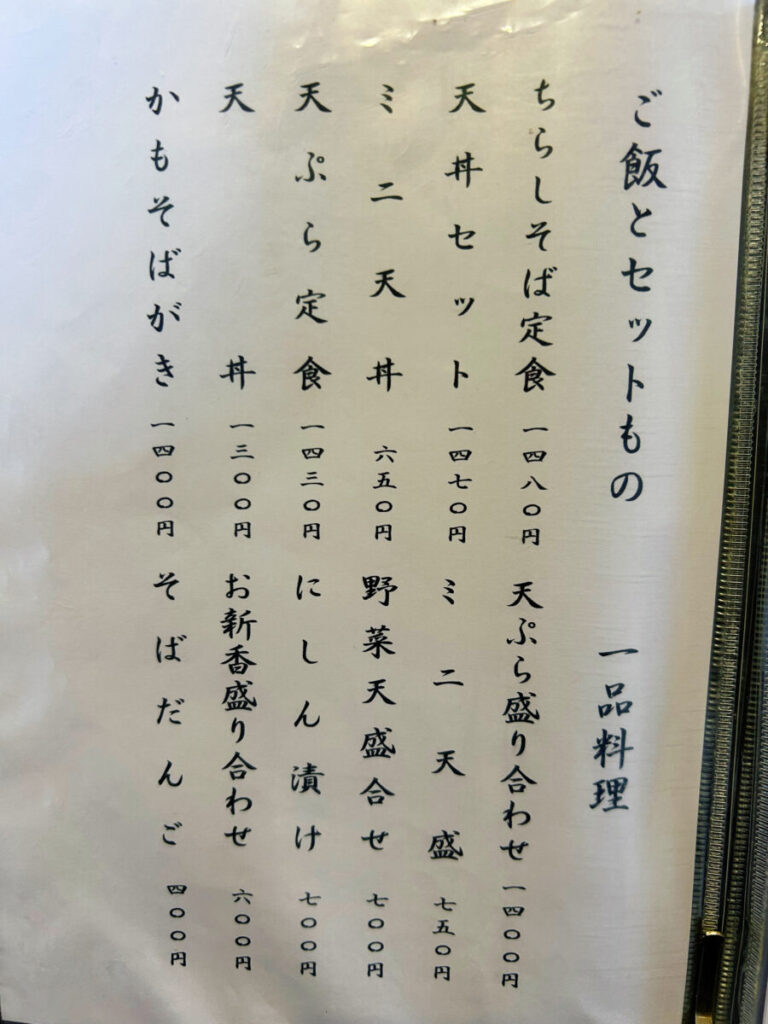 ご飯とセットもの
ちらしそば定食 一四八〇円
天丼セット 一四七〇円
ミニ天丼 六五〇円
天ぷら定食 一四三〇円
天丼 一三〇〇円
かもそばがき 一四〇〇円
一品料理
天ぷら盛り合わせ 一四〇〇円
ミニ天盛 七五〇円
野菜天盛合せ 七〇〇円
にしん漬け 七〇〇円
お新香盛り合わせ 六〇〇円
そばだんご 四〇〇円